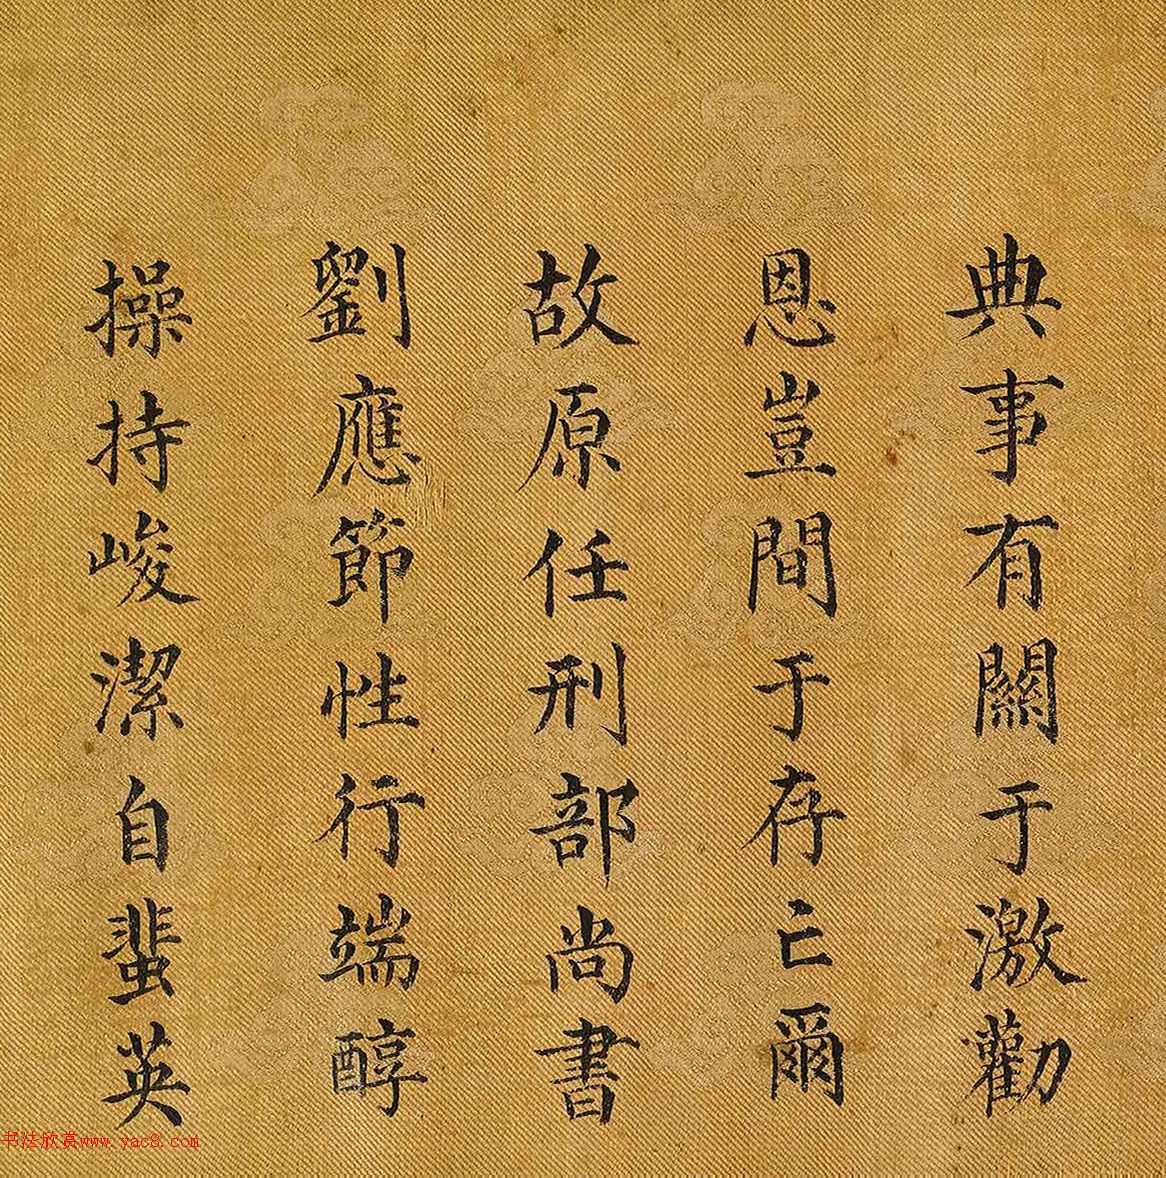 典事有關于激勸
恩豈間于存亡爾
故原任刑部尚書
劉應節性行端醇
操持峻潔自蜚英
书法欣赏www.yac8.com